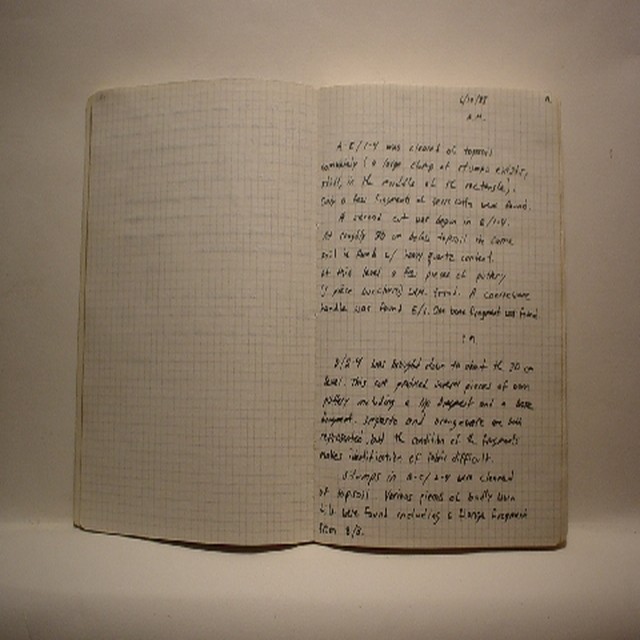 A.M.
A-E/1-4 was cleared of topsoil
(a large clump of stumps exists,
still, in the middle of the rectangle).
only a few fragments of were found.
A second cut was begun in E/1-4.
At roughly 30 cm below topsoil the same
soil is found w/ heavy quartz content.
At this level a few pieces of pottery
(1 piece ) were found. A coarseware
handle was found E/1. One bone fragment was found
P.M.
B/2-4 was brought down to about the 30 cm
level. This cut produced several pieces of
pottery including a lip fragment and a base
fragment. Impasto and orangeware are both
represented, but the condition of the fragments
makes identification of fabric difficult.
Stumps in were cleared
of topsoil. Various pieces of badly worn
tile were found including a flange fragment
from B/3.